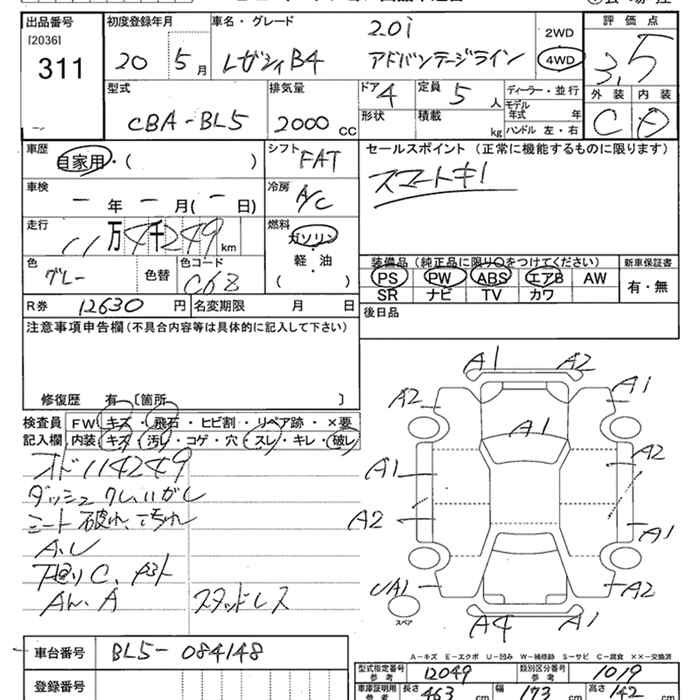 出品番号 初度登録年月 車名・グレード 評価点
[2036] 2.0i 2WD
311 20 5月 レガシィB4 アドバンテージライン 4WD 3.5
外装 内装
型式 排気量 ドア 4 定員 5人 ディーラー・並行
CBA-BL5 2000 CC 形状 積載 kg モデル年式 年 C D
ハンドル 左・右
車歴 自家用・( ) シフト FAT セールスポイント (正常に機能するものに限ります)
スマートキー
車検 ー年ー月(ー日) 冷房 A/C
走行 11万4千249km 燃料 ガソリン
軽・油
( )
色 グレー 色替 色コード C68
装備品(純正品に限り○をつけてください) 新車保証書
PS PW ABS エアB AW 有・無
SR ナビ TV カワ
R券 12630円 名変期限 月 日 後日品
注意事項申告欄(不具合内容等は具体的に記入して下さい)
修復歴 有 〔箇所 〕
検査員 FW キズ・飛石・ヒビ割・リペア跡・×要
記入欄 内装 キズ・汚レ・コゲ・穴・スレ・キレ・破レ
オド114249
シート 破れ、
下廻りC、
A
スタッドレス
A1 A2
A2 A1
A1
A1 A2
A2 A1
A1 A2
スペア
A4 A1
A-キズ E-エクボ U-凹み W-補修跡 S-サビ C-腐食 ××-交換済
車台番号 BL5-084148
型式指定番号 参考 12049 類別区分番号 参考 1019
登録番号
車庫証明用 参考 長さ 463 cm 幅 173 cm 高さ 142 cm